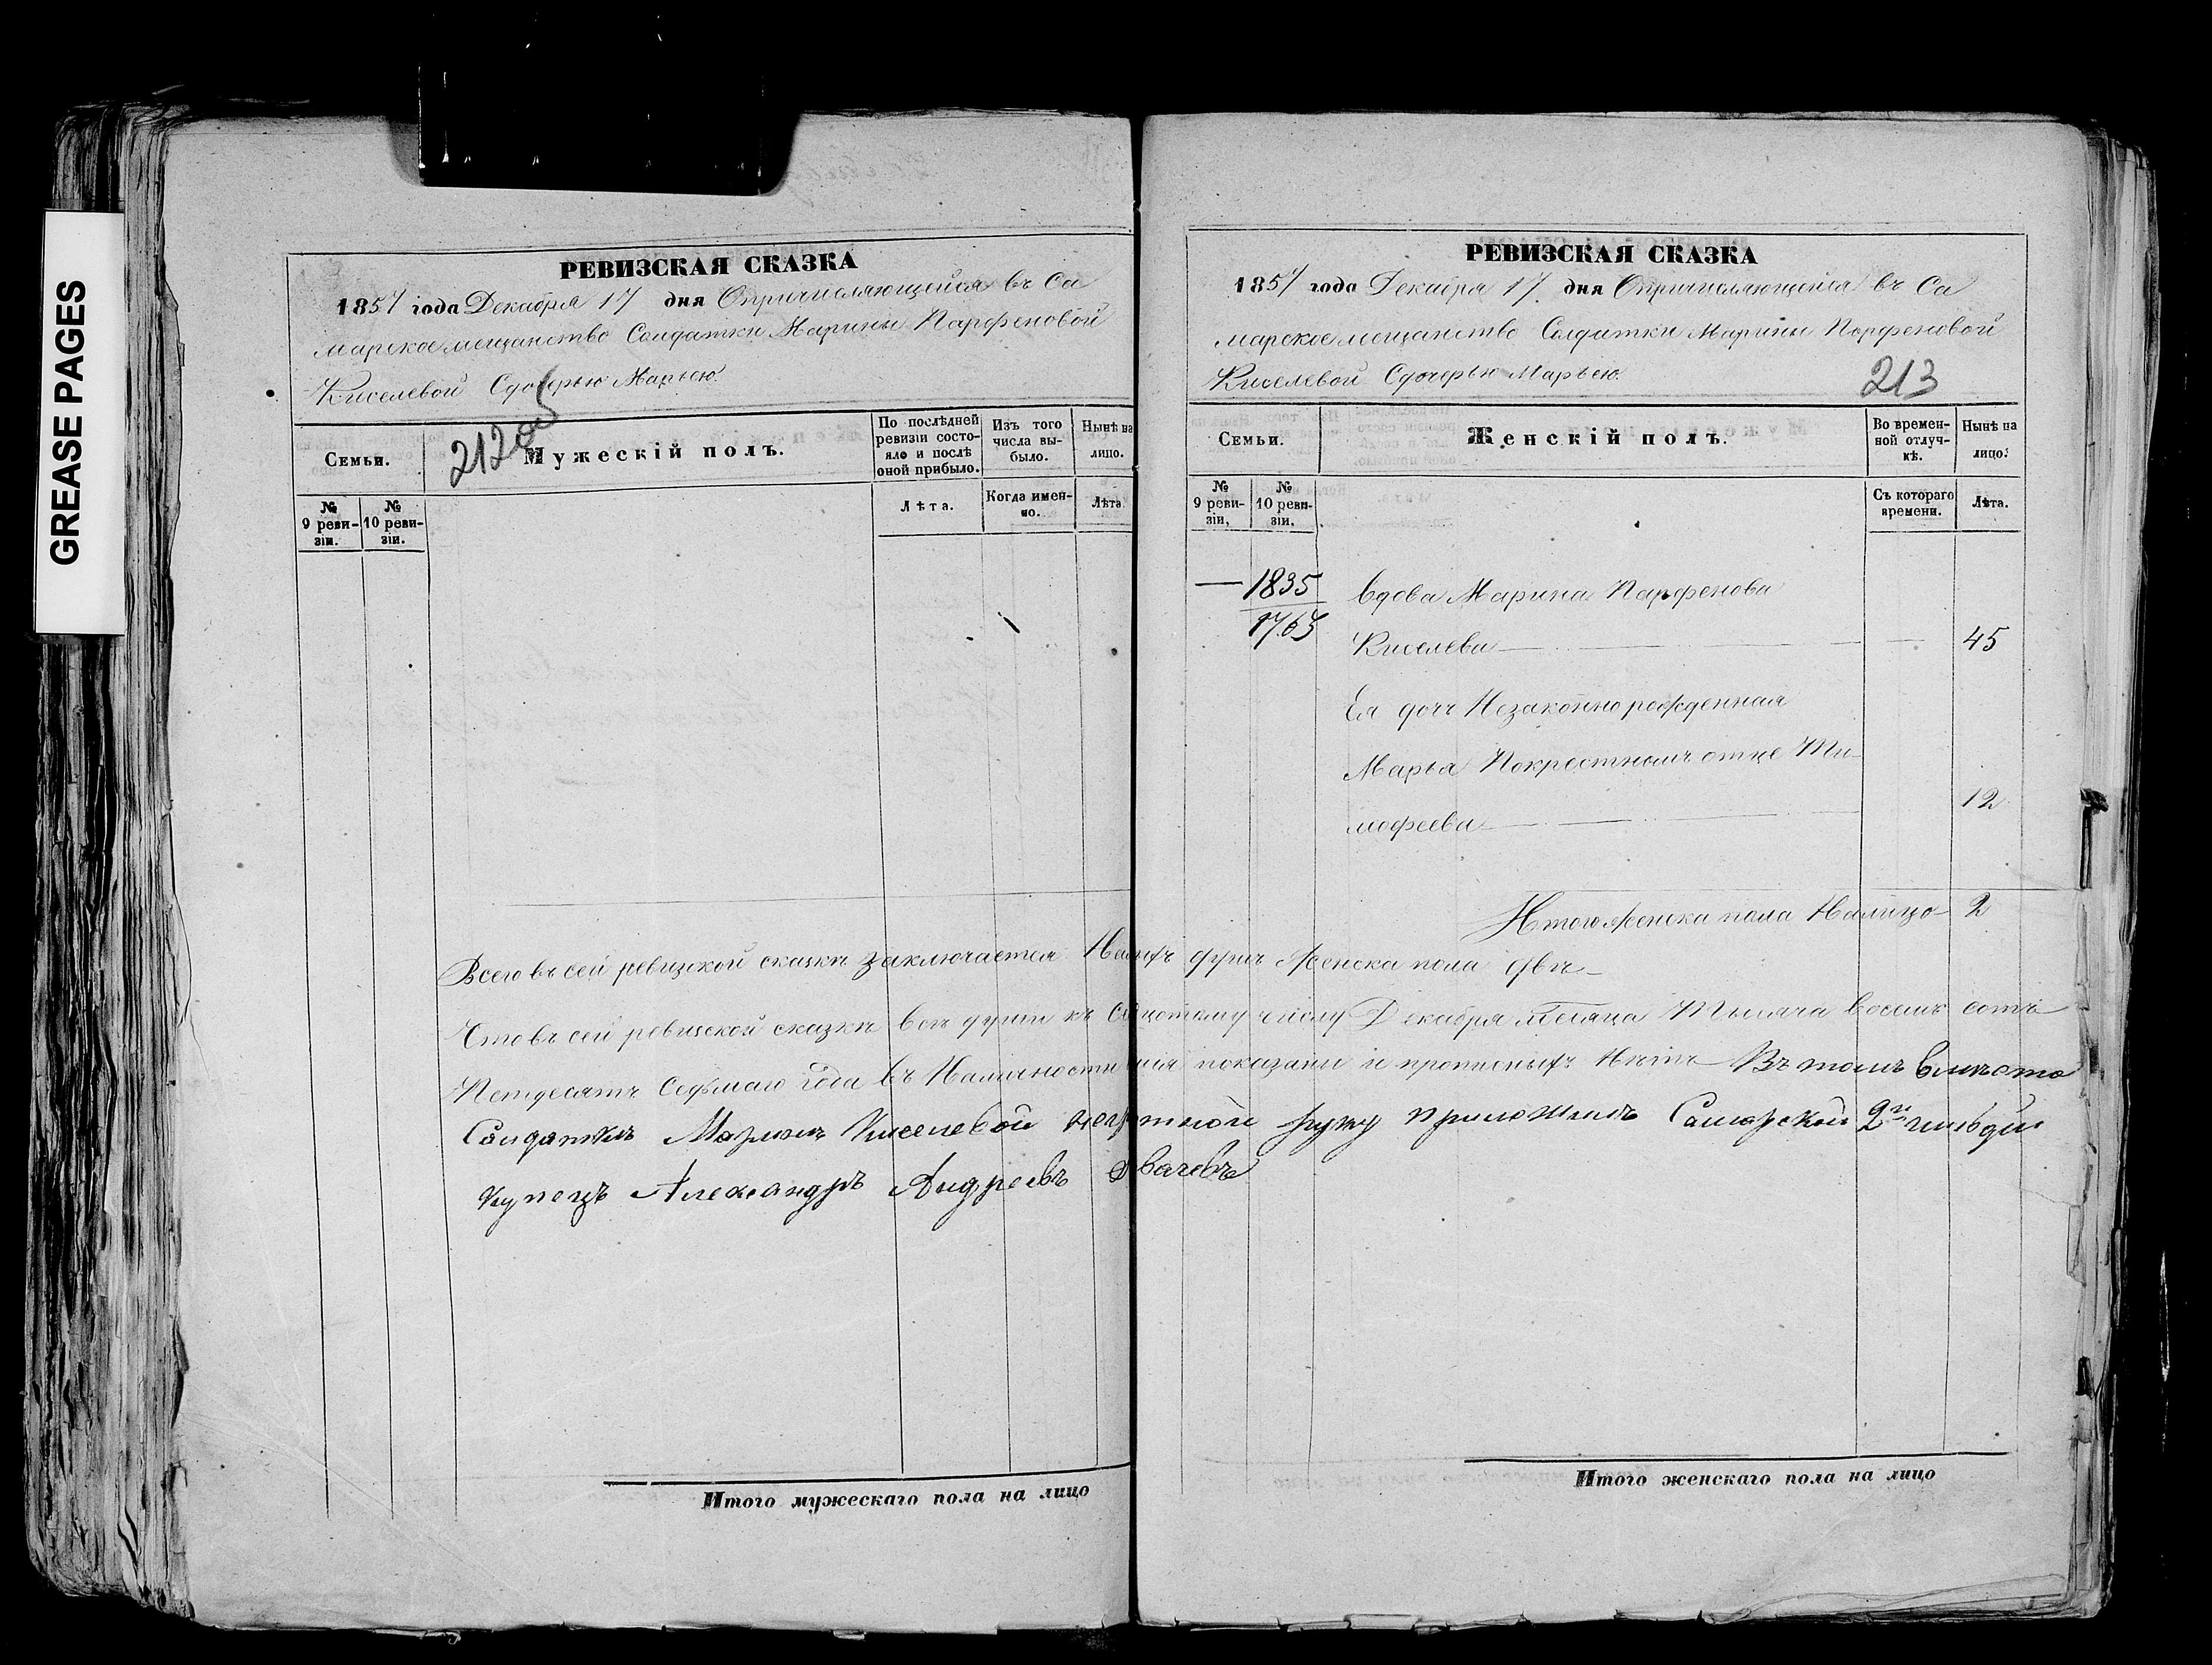 GREASE PAGES
РЕВИЗСКАЯ СКАЗКА
1857 года Декабря 17 дня Опричисляющейся въ Са
марское мещанство Солдатки Марины Парфеновой
Киселевой Сдочерью Марьею.
212 об
Семьи.
Мужескій полъ.
По послѣдней ревизіи состояло и послѣ оной прибыло.
Изъ того числа выбыло.
Нынѣ на лицо.
№ 9 ревизіи.
№ 10 ревизіи.
Лѣта.
Когда именно.
Лѣта
РЕВИЗСКАЯ СКАЗКА
1857 года Декабря 17 дня Опричисляющейся въ Са
марское мещанство Солдатки Марины Парфеновой
Киселевой Сдочерью Марьею.
213
Семьи.
Женскій полъ.
Во временной отлучкѣ.
Нынѣ на лицо.
№ 9 ревизіи.
№ 10 ревизіи.
Съ котораго времени.
Лѣта.
— 1835 Вдова Марина Парфенова
Киселева — — 45
Ея дочь Незаконно рожденная
Марья Покрестномъ отце Ти-
мофеева — 12
Итого женска пола Налицо 2
Всего въ сей ревизской сказкѣ заключается душъ женска пола двѣ
Что въ сей ревизской сказкѣ все души къ числу Декабря месяца Тысяча восемь сотъ
Петдесятъ Седмаго года въ Наличности показаны и прописныхъ Нѣтъ Въ томъ вместо
Солдатки Марины Киселевой руку приложилъ Самарской 2й гильдии
купецъ Александръ Андреевъ
Итого мужескаго пола на лицо
Итого женскаго пола на лицо